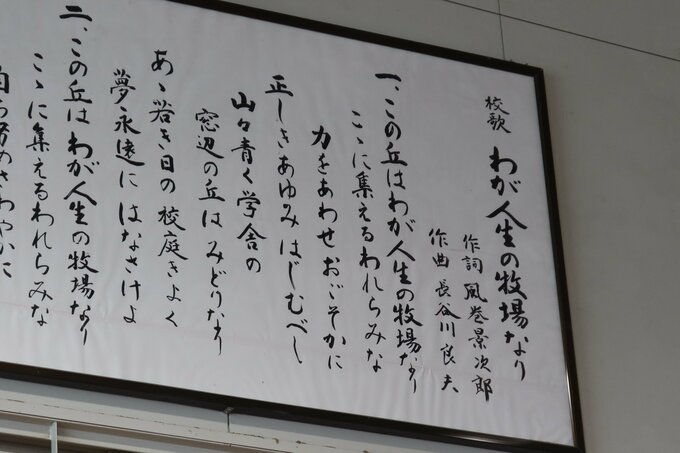 校歌 わが人生の牧場なり
作詞 風巻景次郎
作曲 長谷川良夫
一、この丘はわが人生の牧場なり
こゝに集えるわれらみな
力をあわせおごそかに
正しきあゆみはじむべし
山々青く学舎の
窓辺の丘はみどりなり
あゝ若き日の校庭きよく
夢永遠にはなさけよ
二、この丘はわが人生の牧場なり
こゝに集えるわれらみな
自ら努めさわやかに